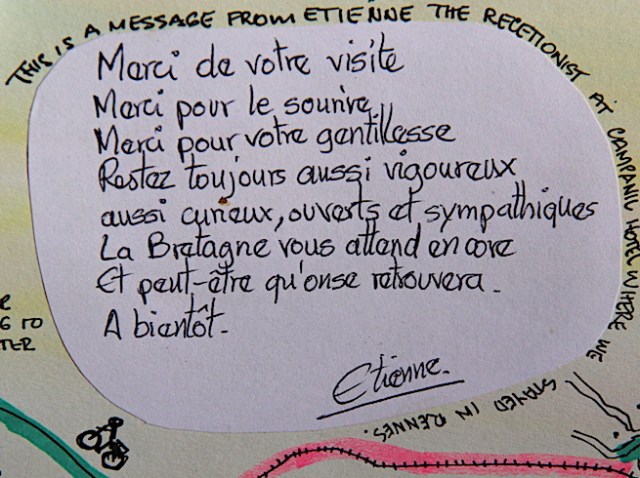 THIS IS A MESSAGE FROM ETIENNE THE RECETIONIST AT CAMPANIL HOTEL WHERE WE STAYED IN RENNES.
Merci de votre visite
Merci pour le sourire
Merci pour votre gentillesse
Restez toujours aussi vigoureux
aussi curieux, ouverts et sympathiques
La Bretagne vous attend encore
Et peut-être qu'on se retrouvera.
A bientôt.
Etienne.
TO